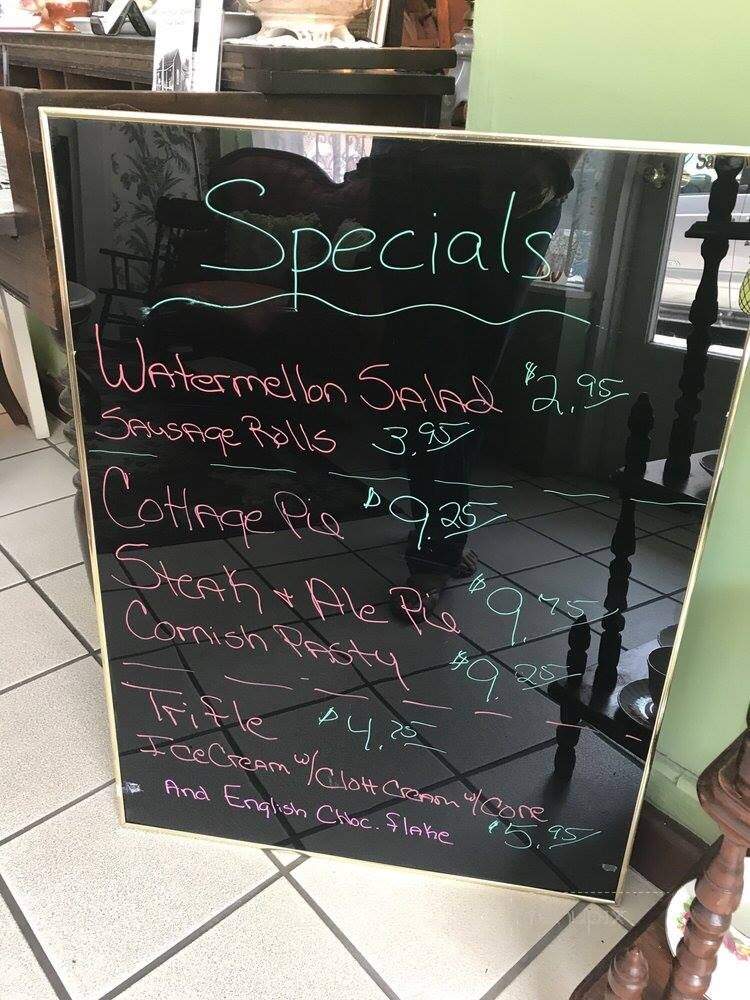 Specials
Watermellon Salad $2.95
Sausage Rolls 3.95
Cottage Pie $9.25
Steak & Ale Pie $9.75
Cornish Pasty $9.25
Trifle $4.25
Ice Cream w/Clott Cream w/Cone
And English Choc. flake $5.95